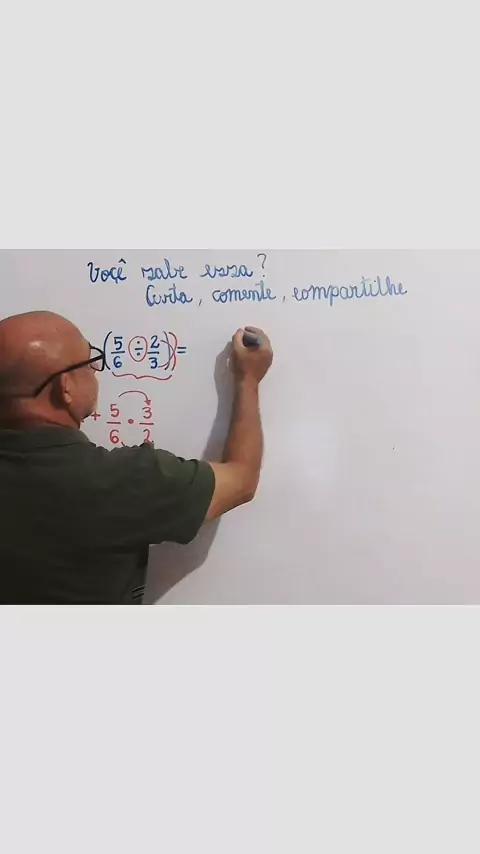 Você sabe essa?
Curta, comente, compartilhe
(5/6 ÷ 2/3)) =
+ 5/6 • 3/2